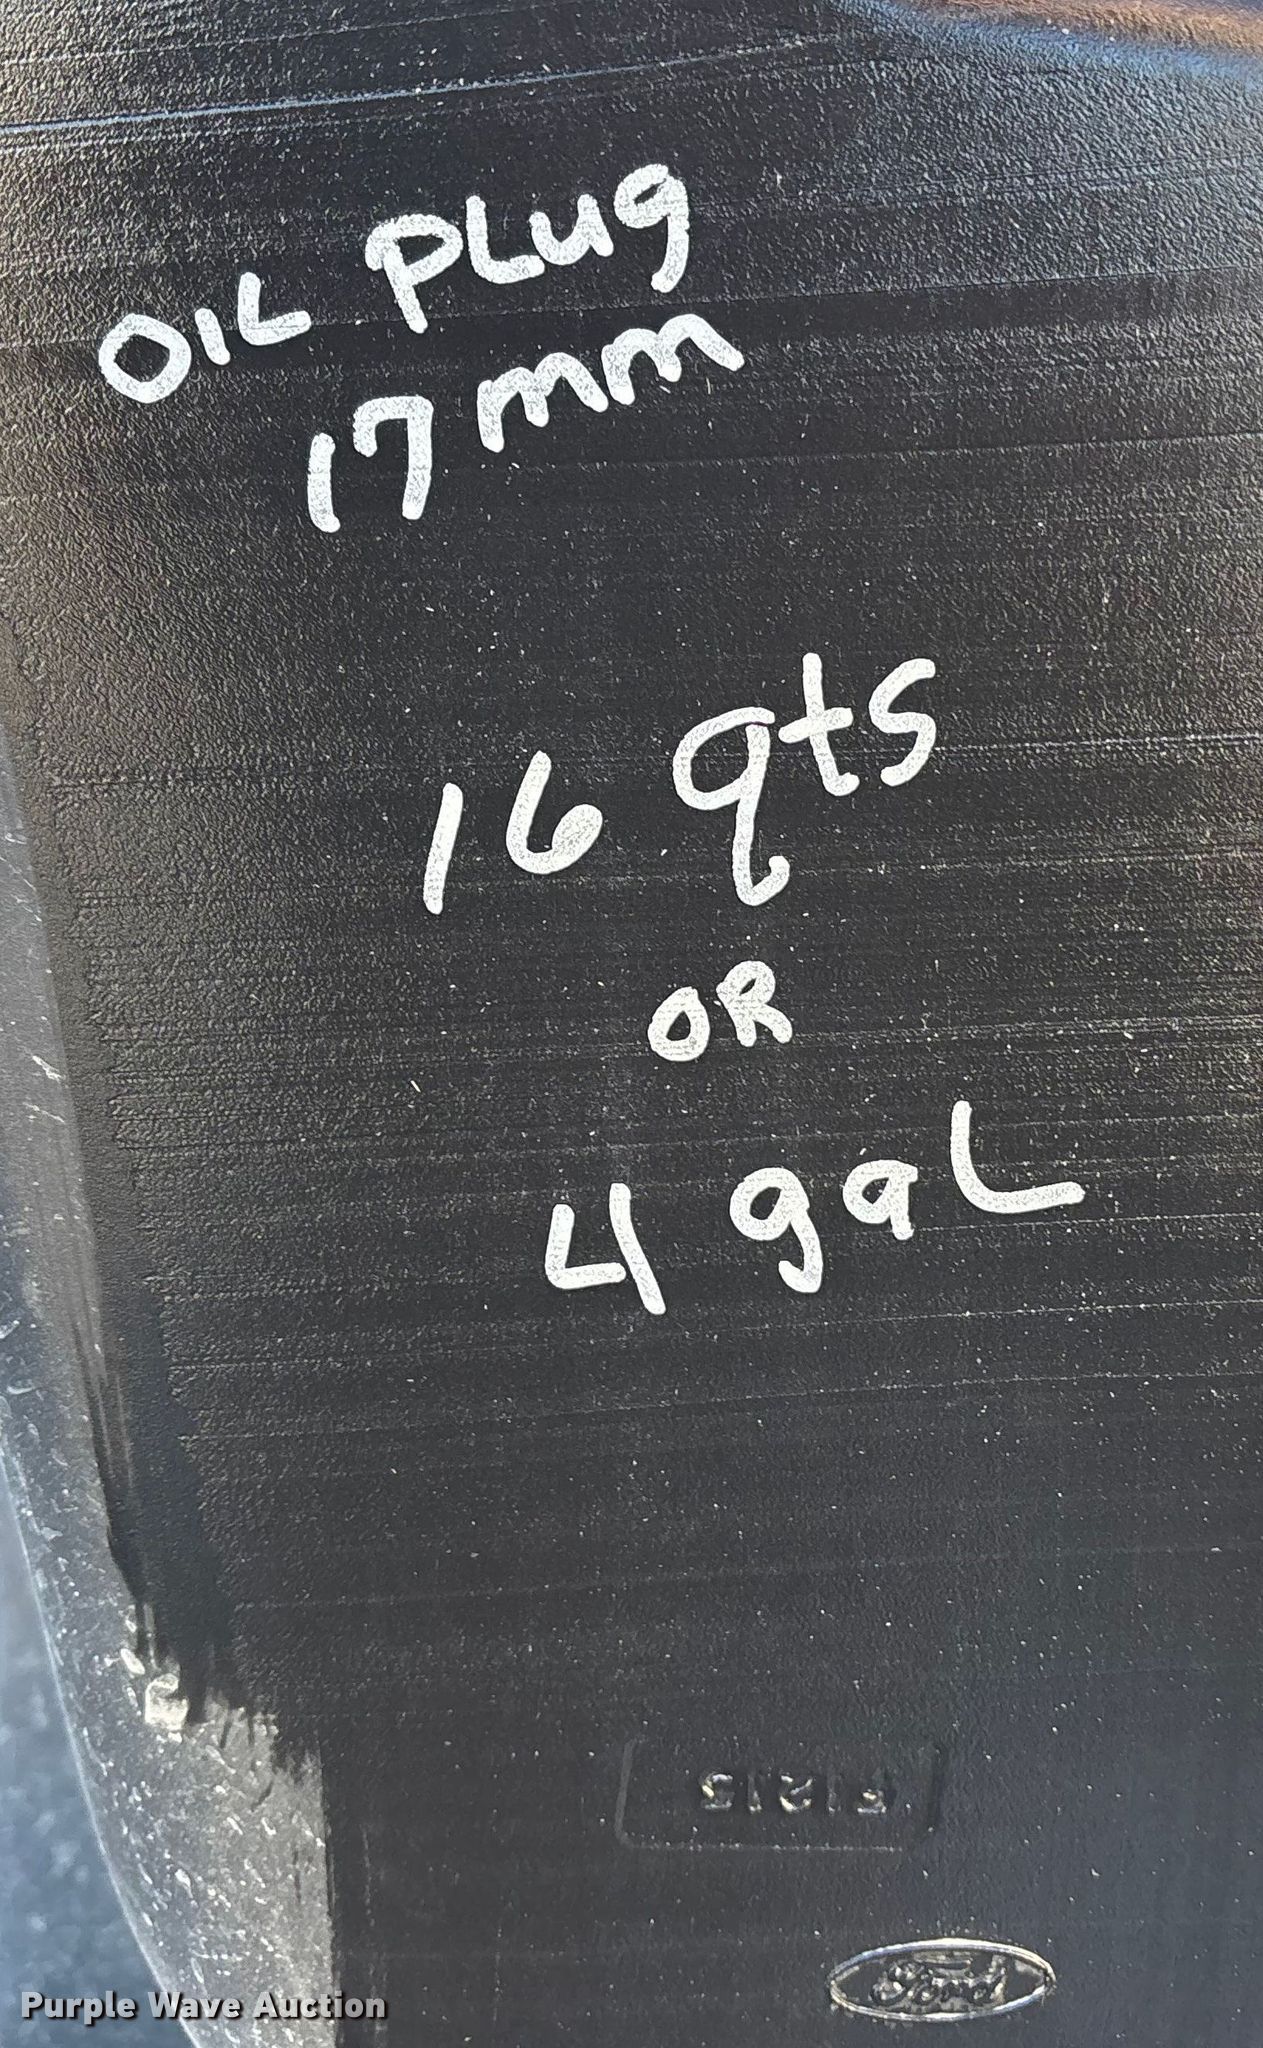 OIL PLug
17mm
16 qts
OR
4 gaL
Ford
Purple Wave Auction